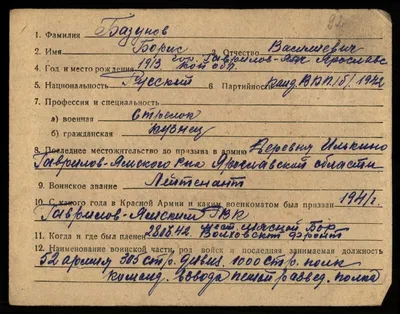 1. Фамилия Базунов
2. Имя Борис 3. Отчество Васильевич
4. Год и место рождения 1913 гор. Гаврилов-Ям Ярославской обл.
5. Национальность Русский 6. Партийность Канд. ВКП/б/ 1942
7. Профессия и специальность
а) военная Стрелок
б) гражданская Кузнец
8. Последнее местожительство до призыва в армию Деревня Илькино
Гаврилов-Ямского р-на Ярославской области
9. Воинское звание Лейтенант
10. С какого года в Красной Армии и каким военкоматом был призван 1941 г.
Гаврилов-Ямским РВК
11. Когда и где был пленен 28.8.42. Мясной Бор Волховский фронт
12. Наименование воинской части, род войск и последняя занимаемая должность
52 армия 305 стр. дивиз. 1000 стр. полк
команд. взвода пешей развед. полка